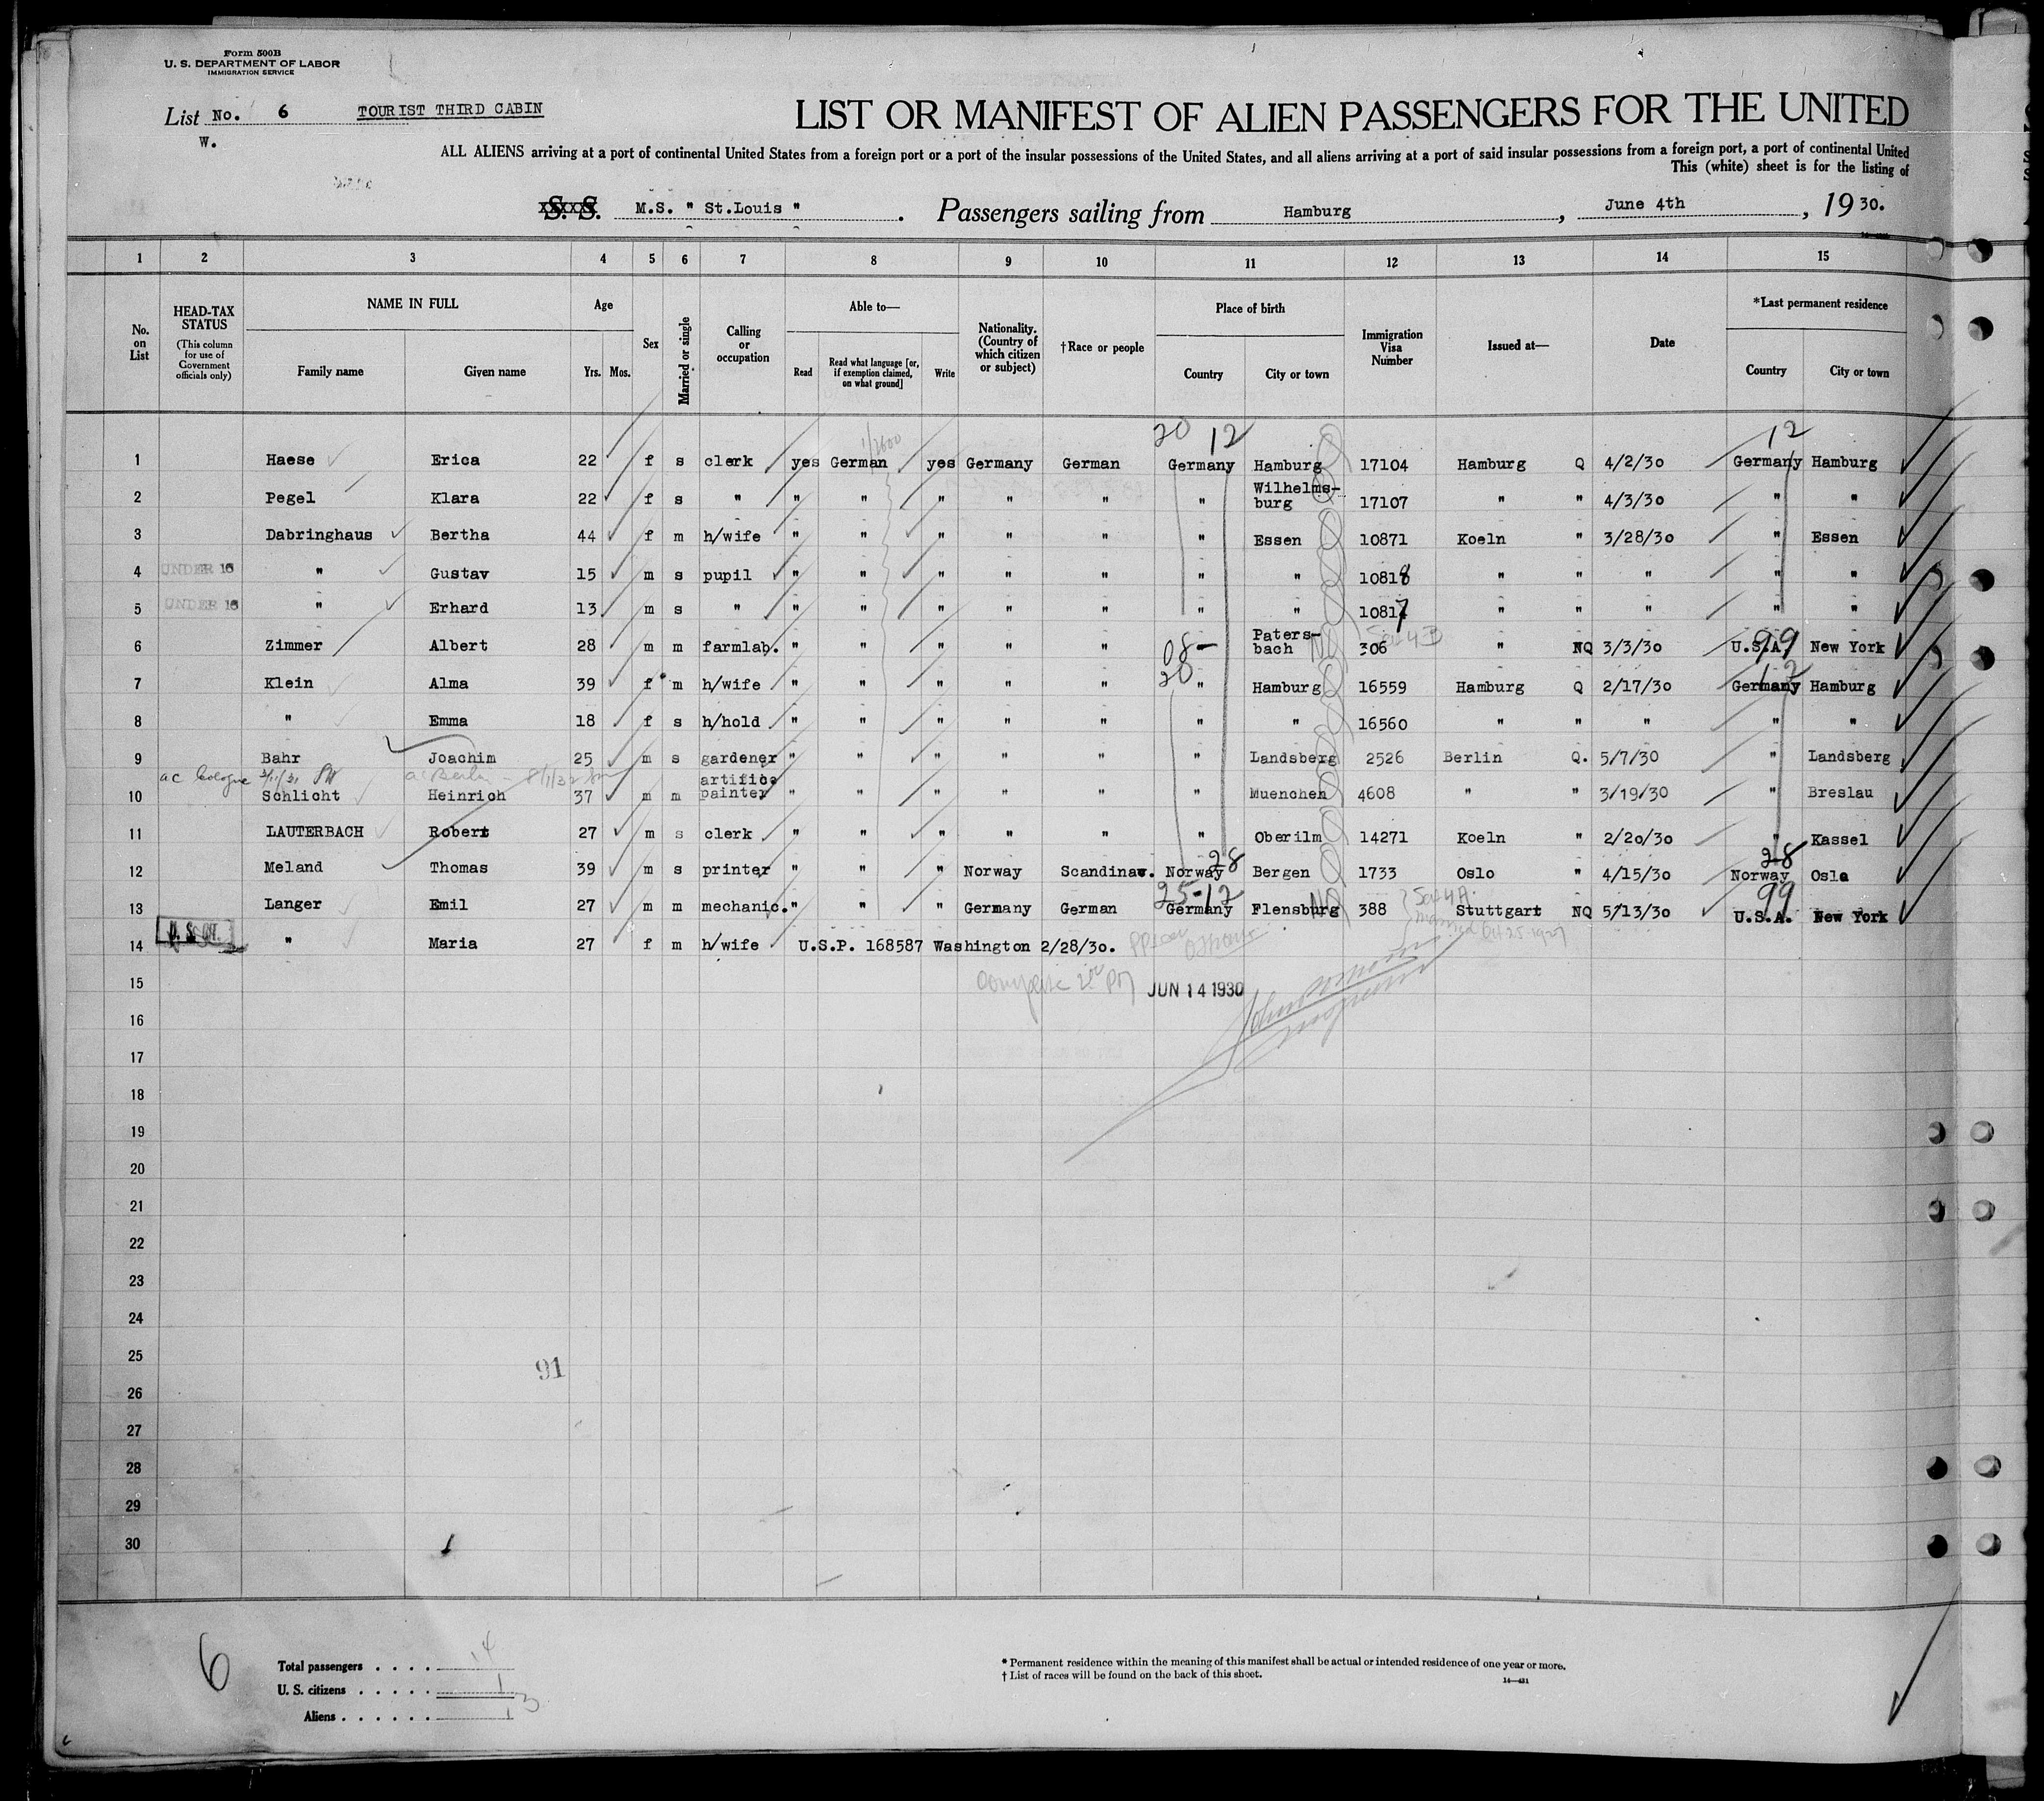 Form 500B
U. S. DEPARTMENT OF LABOR
IMMIGRATION SERVICE
List No. 6 TOURIST THIRD CABIN
W.
LIST OR MANIFEST OF ALIEN PASSENGERS FOR THE UNITED
ALL ALIENS arriving at a port of continental United States from a foreign port or a port of the insular possessions of the United States, and all aliens arriving at a port of said insular possessions from a foreign port, a port of continental United
This (white) sheet is for the listing of
S. S. M.S. " St.Louis " . Passengers sailing from Hamburg , June 4th , 19 30.
1 2 3 4 5 6 7 8 9 10 11 12 13 14 15
No. on List
HEAD-TAX STATUS
(This column for use of Government officials only)
NAME IN FULL
Family name Given name
Age
Yrs. Mos.
Sex
Married or single
Calling or occupation
Able to—
Read Read what language [or, if exemption claimed, on what ground] Write
Nationality. (Country of which citizen or subject)
†Race or people
Place of birth
Country City or town
Immigration Visa Number
Issued at—
Date
*Last permanent residence
Country City or town
20 12 12
1 Haese Erica 22 f s clerk yes German yes Germany German Germany Hamburg 17104 Hamburg Q 4/2/30 Germany Hamburg
2 Pegel Klara 22 f s " " " " " " " Wilhelms-burg 17107 " " 4/3/30 " "
3 Dabringhaus Bertha 44 f m h/wife " " " " " " Essen 10871 Koeln " 3/28/30 " Essen
4 UNDER 16 " Gustav 15 m s pupil " " " " " " " 10818 " " " " "
5 UNDER 16 " Erhard 13 m s " " " " " " " " 10817 " " " " "
6 Zimmer Albert 28 m m farmlab. " " " " " 08- Paters-bach NQ 306 Sec 4 B " NQ 3/3/30 U.S.A. 99 New York
7 Klein Alma 39 f m h/wife " " " " " 20 " Hamburg 16559 Hamburg Q 2/17/30 Germany 12 Hamburg
8 " Emma 18 f s h/hold " " " " " " " 16560 " " " " "
9 Bahr Joachim 25 m s gardener " " " " " " Landsberg 2526 Berlin Q. 5/7/30 " Landsberg
ac Cologne 3/11/31
10 Schlicht Heinrich 37 m m artific. painter " " " " " " Muenchen 4608 " " 3/19/30 " Breslau
11 LAUTERBACH Robert 27 m s clerk " " " " " " Oberilm 14271 Koeln " 2/20/30 " Kassel
12 Meland Thomas 39 m s printer " " " Norway Scandinav. Norway 28 Bergen 1733 Oslo " 4/15/30 Norway 28 Oslo
13 Langer Emil 27 m m mechanic. " " " Germany German 25-12 Germany Flensburg NQ 388 Sec 4 A. married Oct 25 1927 Stuttgart NQ 5/13/30 U.S.A. 99 New York
14 U. S. CIT. " Maria 27 f m h/wife U.S.P. 168587 Washington 2/28/30.
15 JUN 14 1930
16
17
18
19
20
21
22
23
24
25
91
26
27
28
29
30
6
Total passengers . . . . 14
U. S. citizens . . . . . 1
Aliens . . . . . . 13
* Permanent residence within the meaning of this manifest shall be actual or intended residence of one year or more.
† List of races will be found on the back of this sheet.
14—431